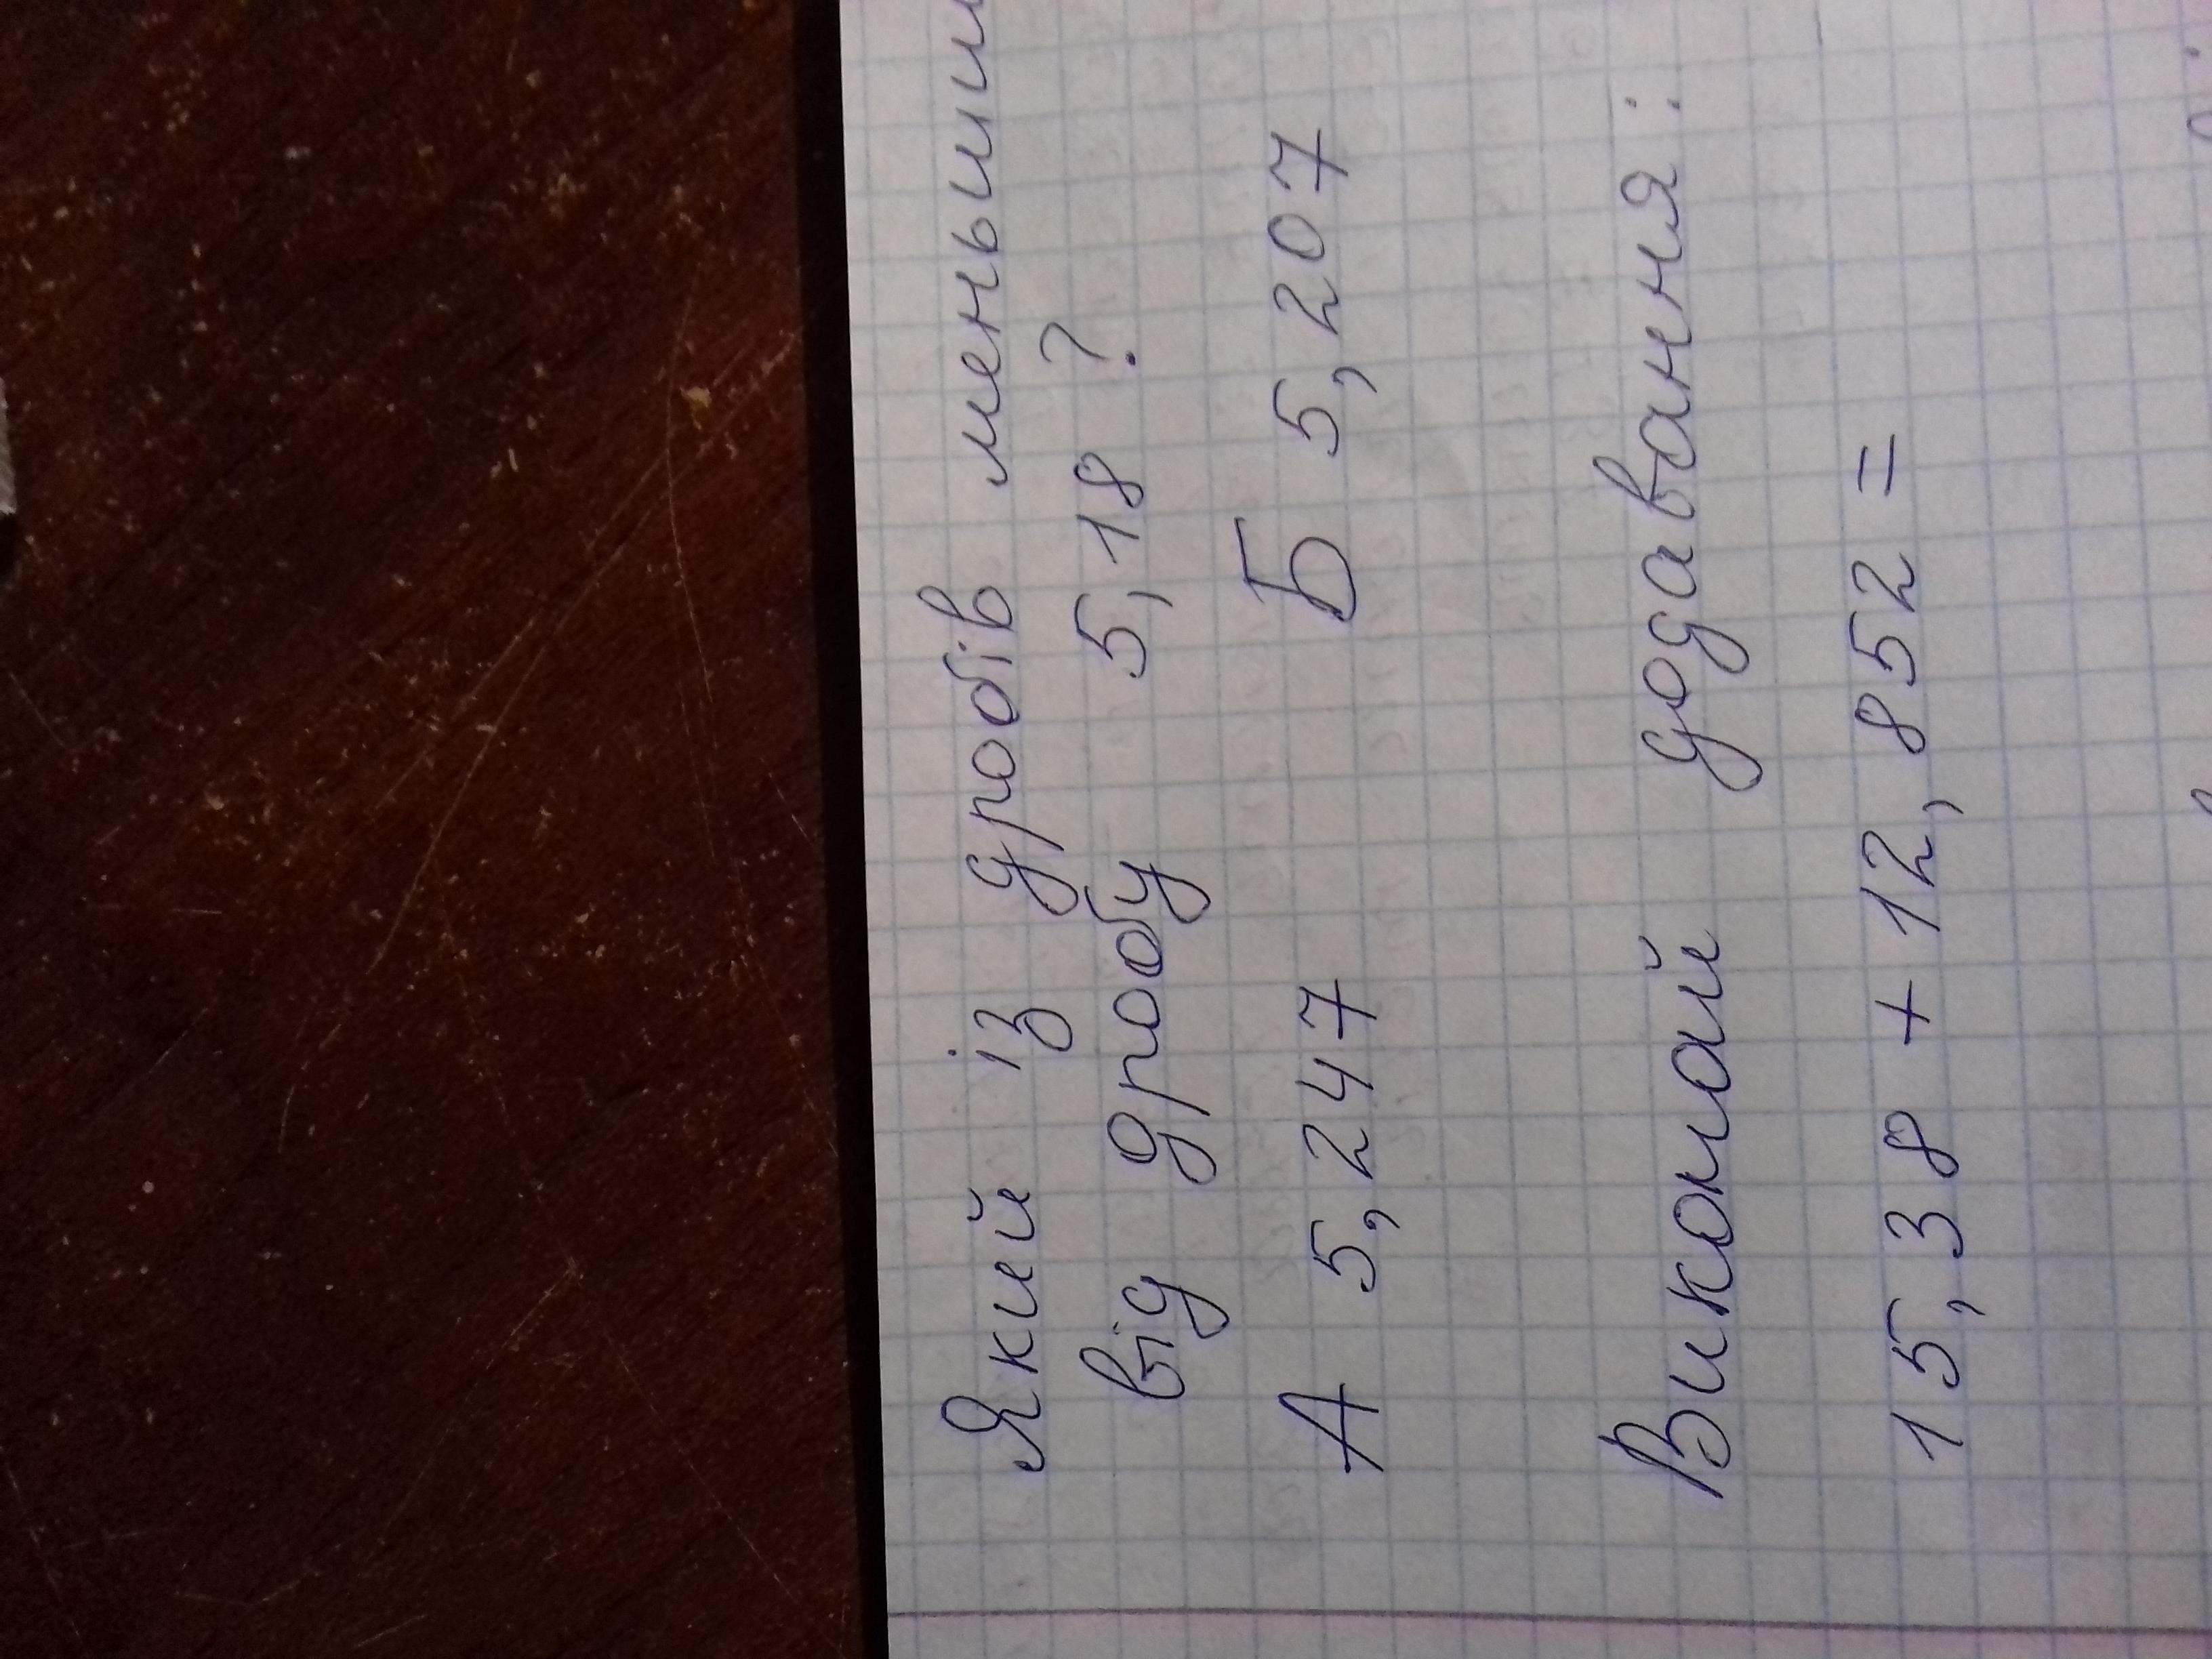 Який із дробів меньшим
від дробу 5,18 ?
А 5,247 Б 5,207
Виконай додавання:
15,38 + 12,852 =